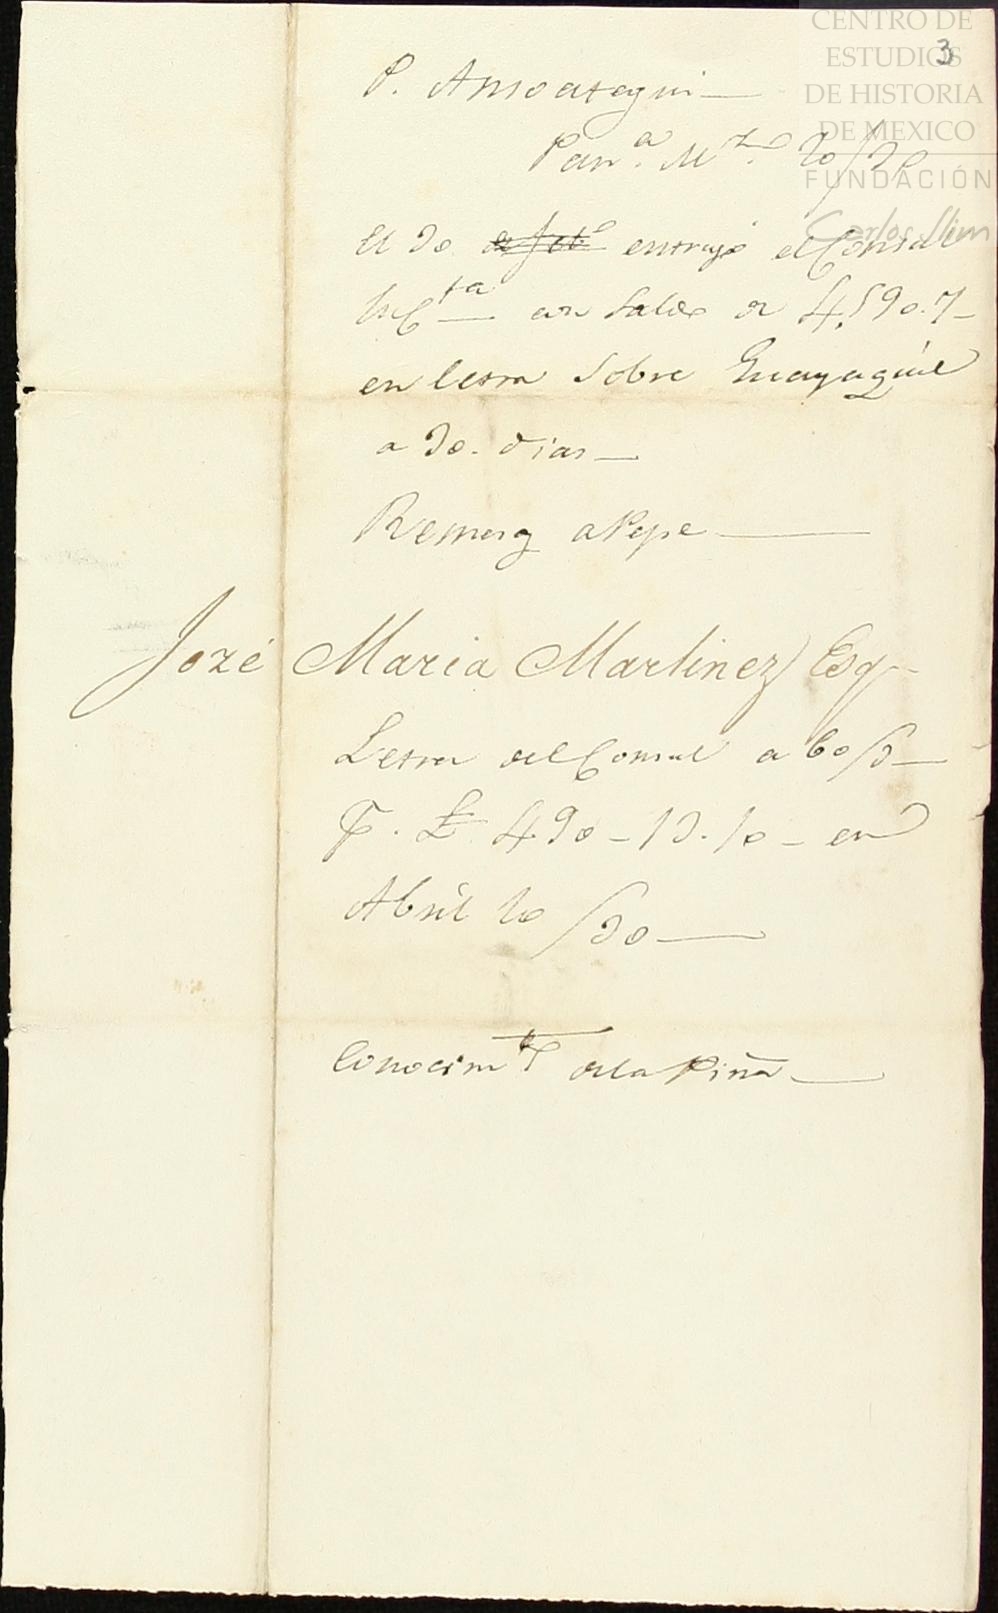 CENTRO DE
ESTUDIOS
DE HISTORIA
DE MEXICO
FUNDACIÓN
Carlos Slim
3
P. Ansoategui
Pan.ª M.zo 20/30
El 30 de feb.o entregó el Consul
en letra sobre Guayaquil
a 30. dias
a Pepe
José Maria Martinez Esq
Letra del Consul a 60/d
P. £ 490-13.10 - en
Abril 20/30
Conocim.to de la Piña